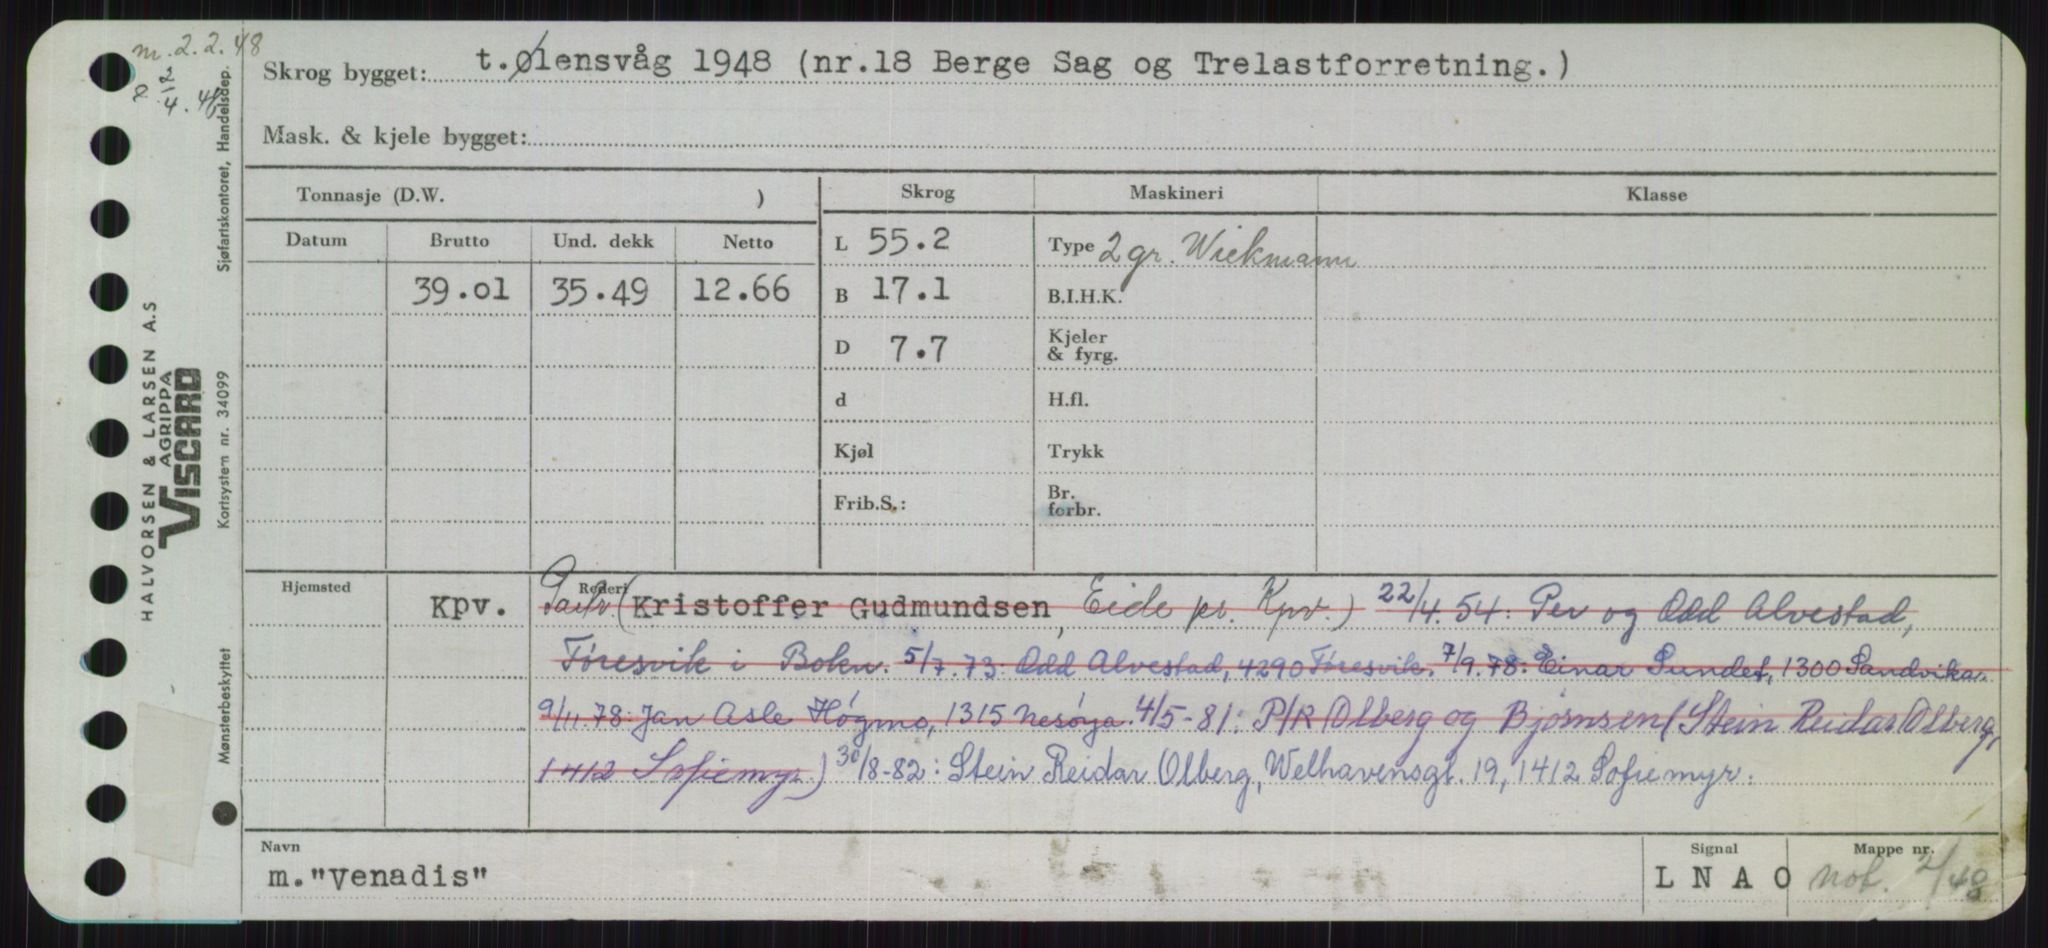 m. 2.2.48
2/4.48
Skrog bygget: t.Ølensvåg 1948 (nr.18 Berge Sag og Trelastforretning.)
Mask. & kjele bygget:
Tonnasje (D.W. )
Skrog
Maskineri
Klasse
Datum Brutto Und. dekk Netto
39.01 35.49 12.66
L 55.2
B 17.1
D 7.7
d
Kjøl
Frib.S.:
Type 2 gr. Wickmann
B.I.H.K.
Kjeler
& fyrg.
H.fl.
Trykk
Br.
forbr.
Hjemsted
Rederi
Kpv. Partr. (Kristoffer Gudmundsen, Eide pr. Kpv.) 22/4.54: Per og Odd Alvestad,
Føresvik i Bokn. 5/7.73: Odd Alvestad, 4290 Føresvik. 7/9.78: Einar Sundet, 1300 Sandvika.
9/11.78: Jan Asle Høgmo, 1315 Nesøya. 4/5-81: P/R Olberg og Bjørnsen (Stein Reidar Olberg,
1412 Sofiemyr) 30/8-82: Stein Reidar Olberg, Welhavensgt. 19, 1412 Sofiemyr.
Navn
m."Venadis"
Signal
L N A O
Mappe nr.
not. 2/48
Sjøfartskontoret, Handelsdep.
Kortsystem nr. 34099
Mønsterbeskyttet
HALVORSEN & LARSEN A.S
AGRIPPA
VISCARD